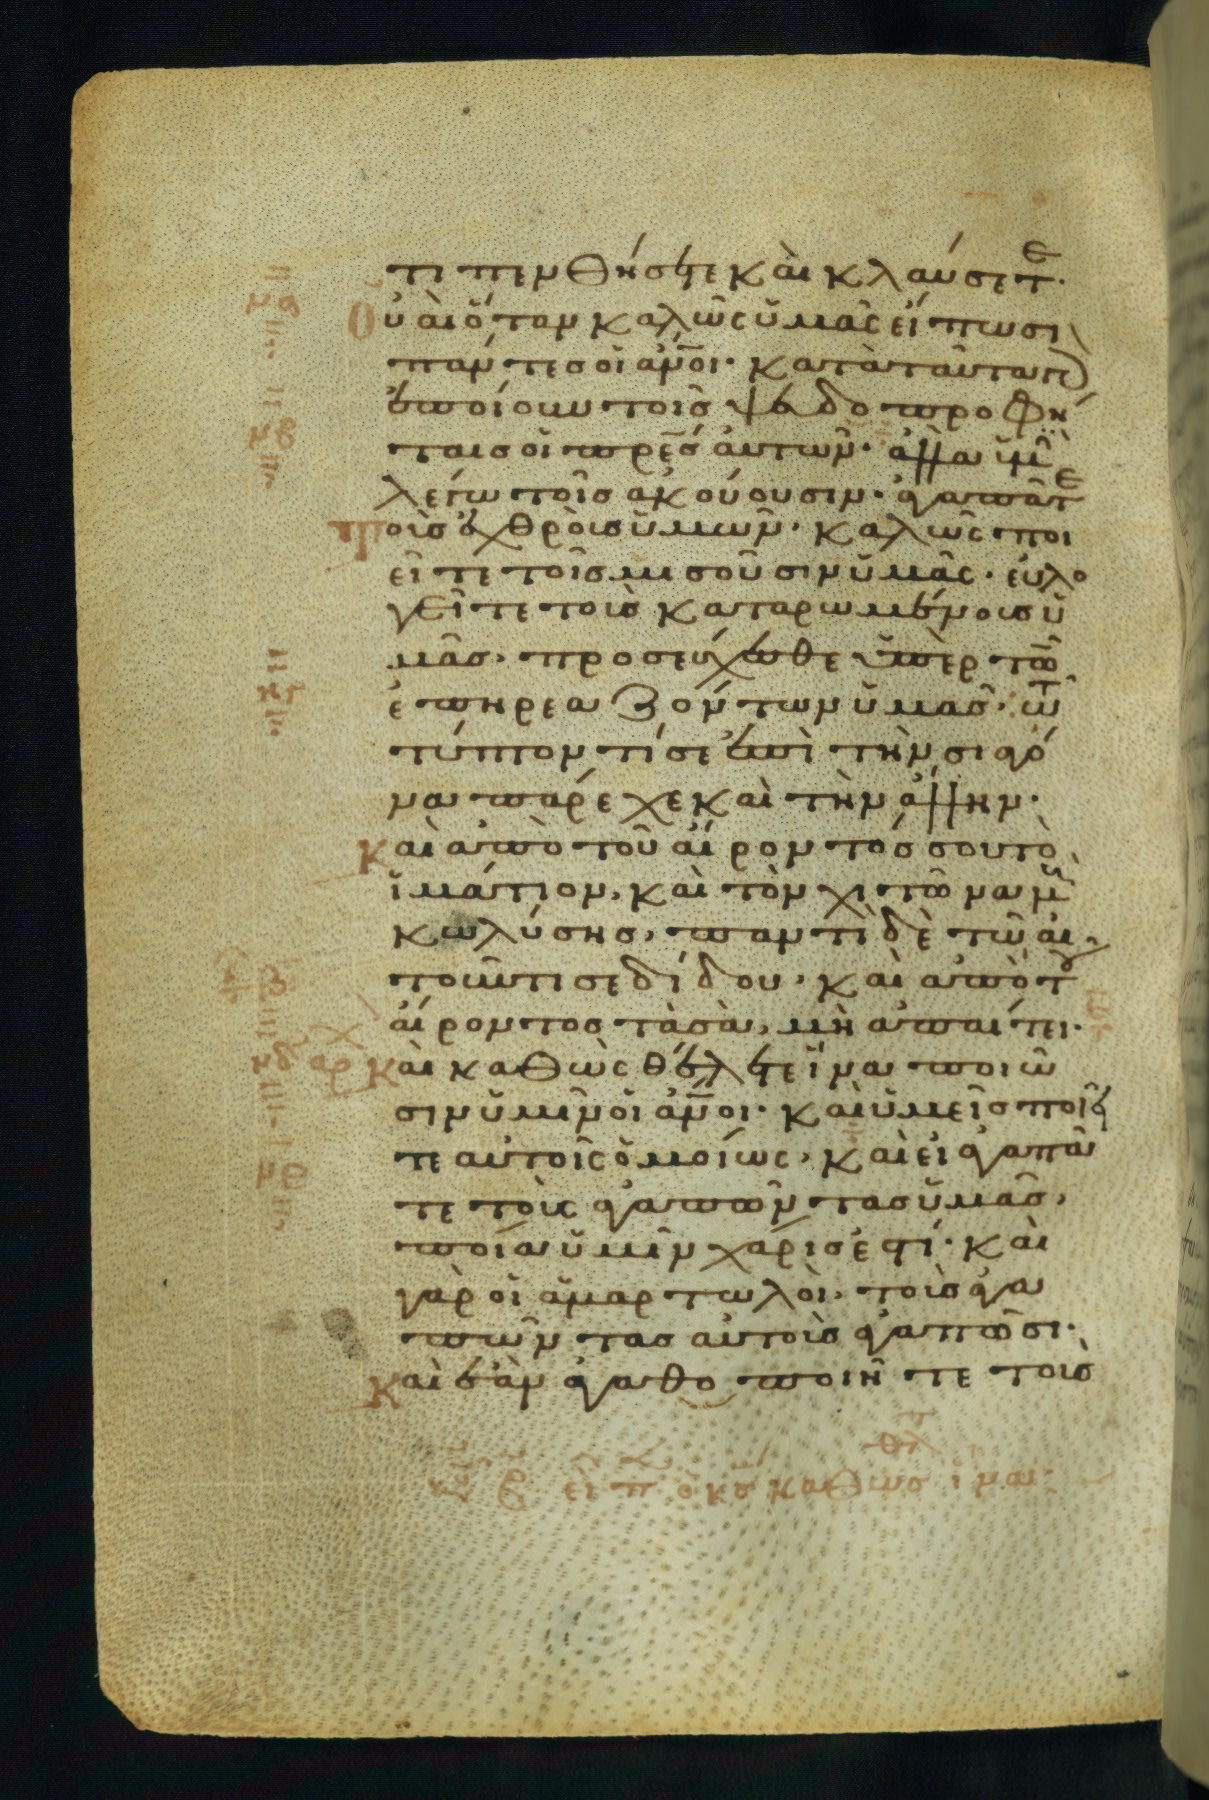 τι πενθήσετε καὶ κλαύσετε.
Οὐαὶ ὅταν καλῶς ὑμᾶς εἴπωσι
πάντες οἱ ἄνοι. κατὰ ταῦτα γ(ὰρ)
ἐποίουν τοῖς ψευδοπροφή
ταις οἱ πρες αὐτῶν. ἀλλὰ ὑμῖν
λέγω τοῖς ἀκούουσιν. ἀγαπᾶτε
τοὺς ἐχθροὺς ὑμῶν. καλῶς ποι
εῖτε τοῖς μισοῦσιν ὑμᾶς. εὐλο
γεῖτε τοὺς καταρωμένους ὑ
μᾶς. προσεύχεσθε ὑπὲρ τῶν
ἐπηρεαζόντων ὑμᾶς. τῷ
τύπτοντί σε ἐπὶ τὴν σιαγό
να πάρεχε καὶ τὴν ἄλλην.
καὶ ἀπὸ τοῦ αἴροντός σου τὸ
ἱμάτιον, καὶ τὸν χιτῶνα μὴ
κωλύσης. παντὶ δὲ τῷ αἰ
τοῦντι σε δίδου. καὶ ἀπὸ τοῦ
αἴροντος τὰ σὰ, μὴ ἀπαίτει.
καὶ καθὼς θέλετε ἵνα ποιῶ
σιν ὑμῖν οἱ ἄνοι. καὶ ὑμεῖς ποιεῖ
τε αὐτοῖς ὁμοίως. καὶ εἰ ἀγαπᾶ
τε τοὺς ἀγαπῶντας ὑμᾶς,
ποία ὑμῖν χάρις ἐστί. καὶ
γὰρ οἱ ἁμαρτωλοὶ, τοὺς ἀγα
πῶντας αὐτοὺς ἀγαπῶσι.
καὶ ἐὰν ἀγαθοποιῆτε τοὺς
καθὼς ἵνα